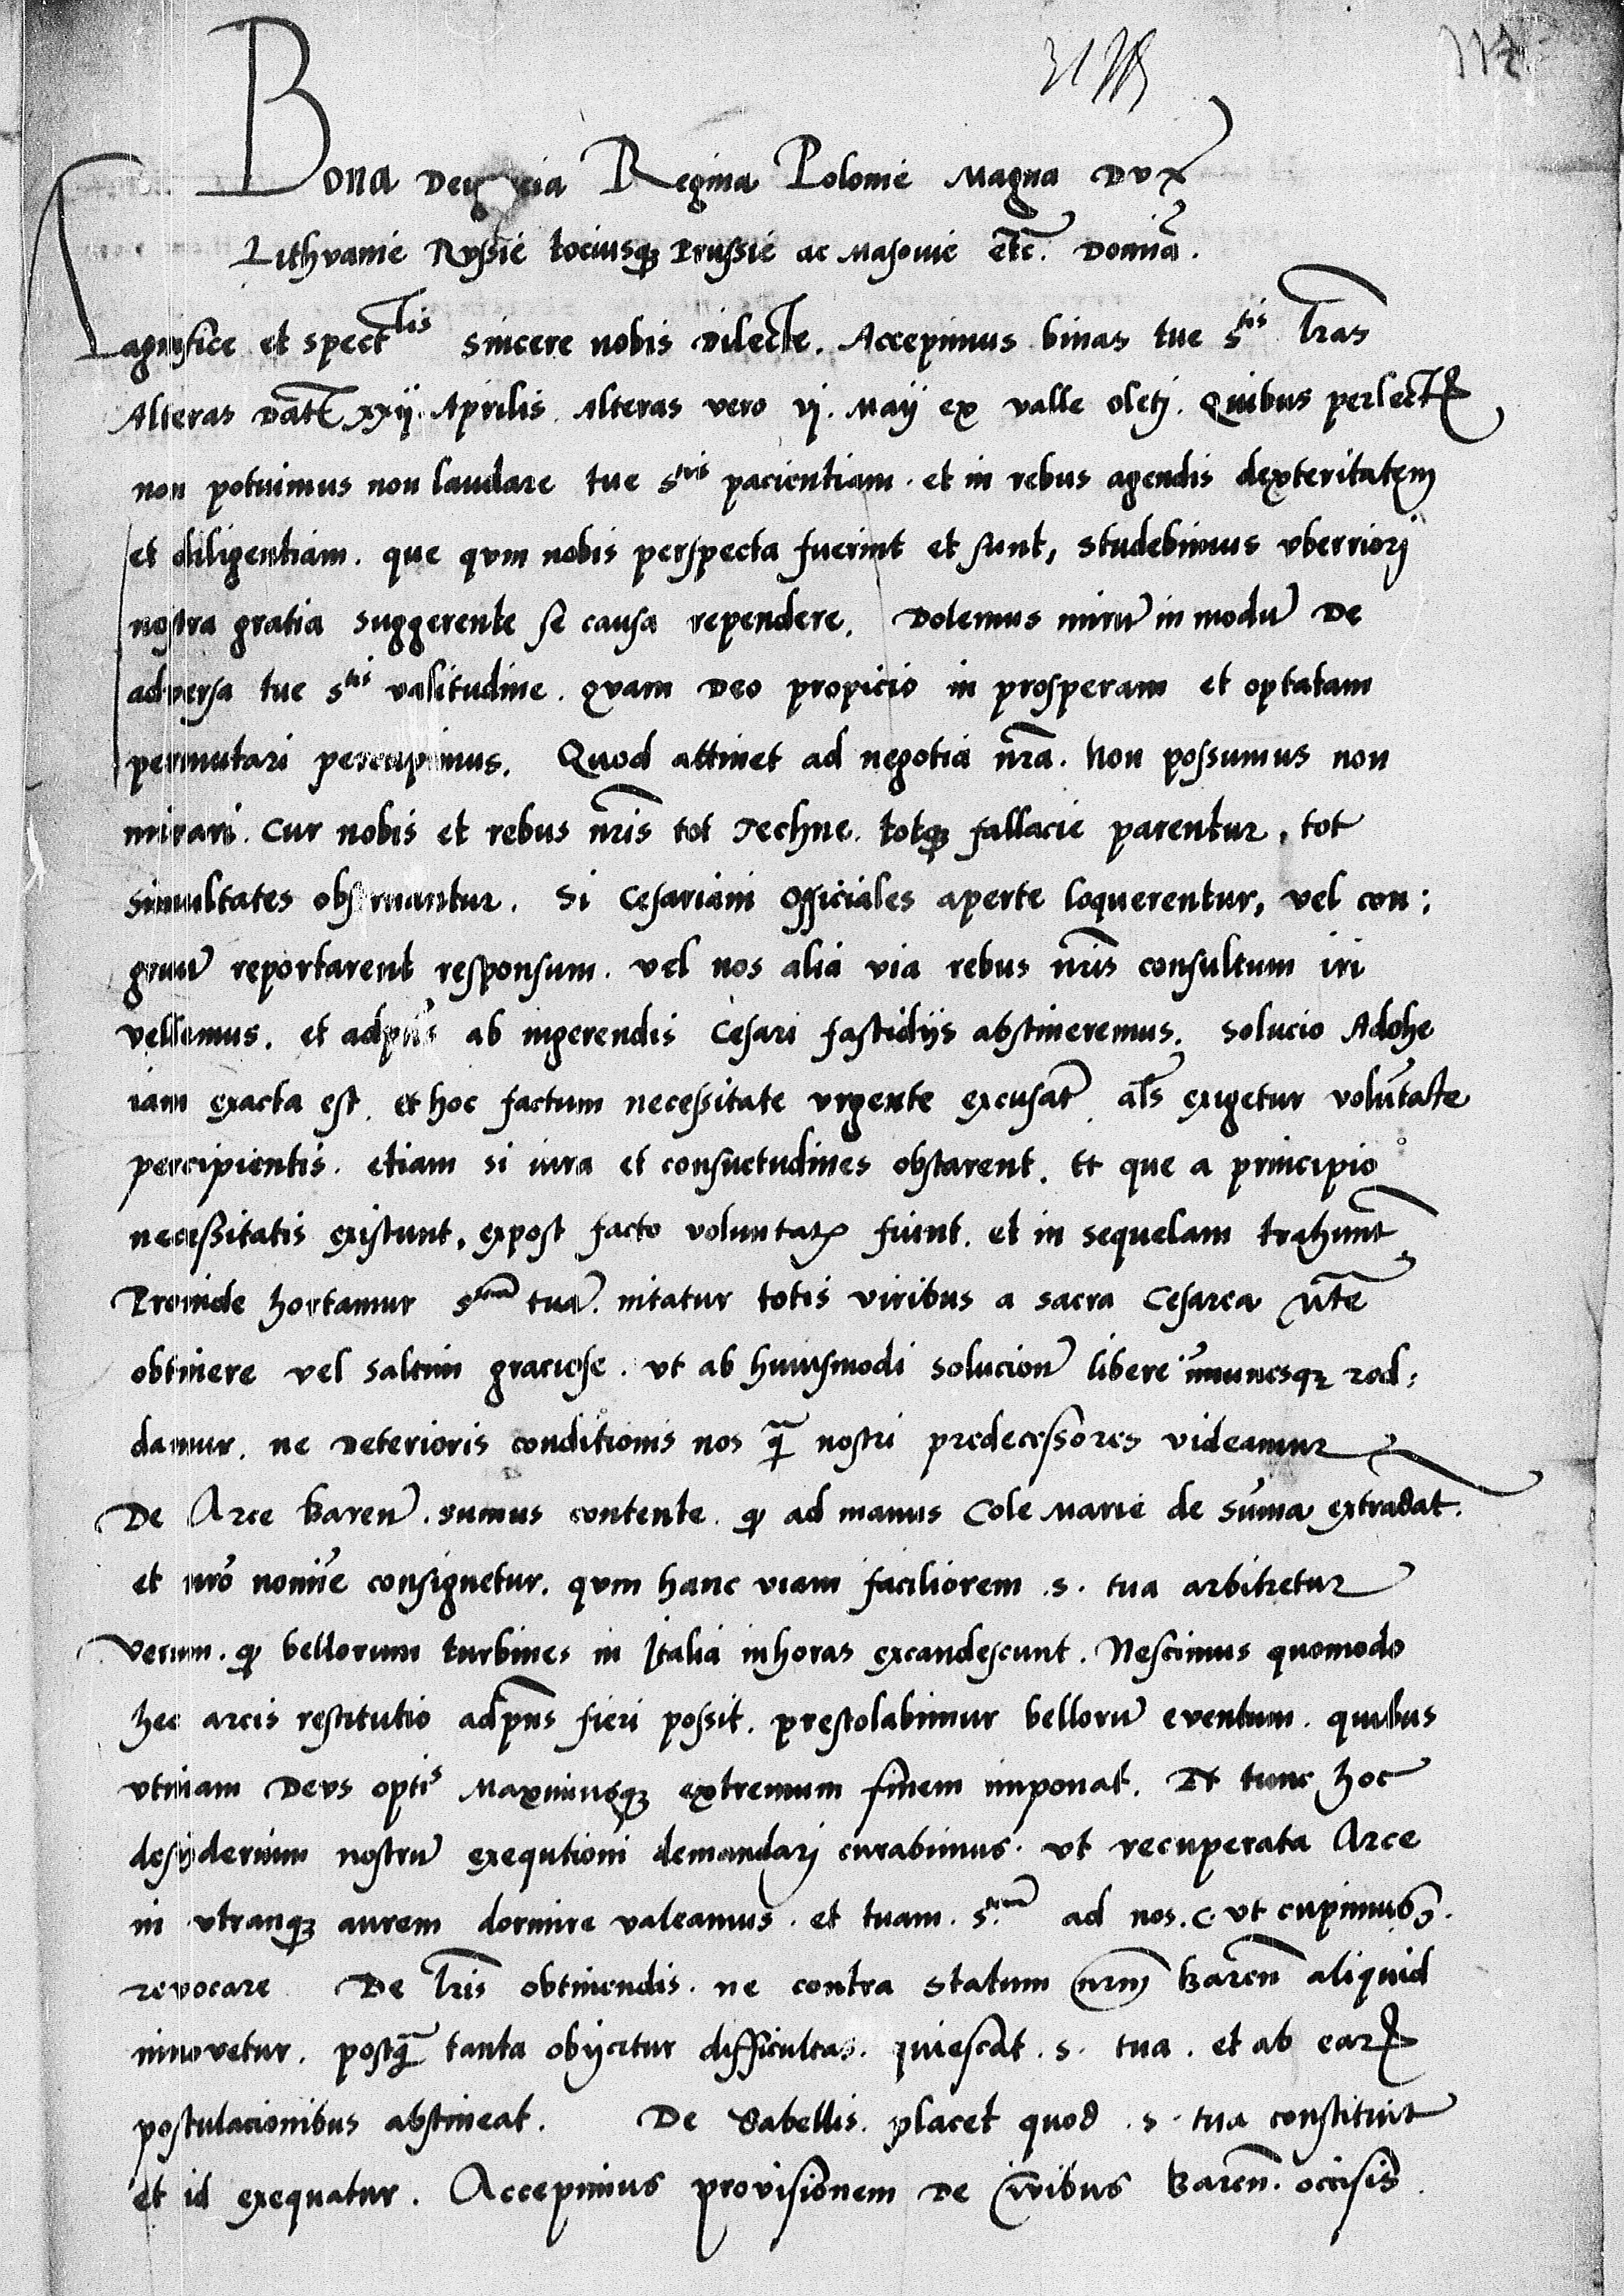 Bona Dei gratia Regina Polonie Magna Dvx
Lithvanie Rvssie tociusq3 Prussie ac Masovie etc. Domina.
agnifice et spectlis sincere nobis dilecte. Accepimus binas tue stis lras
Alteras Dat xxij Aprilis. Alteras vero vj. Maij ex valle oletj. Quibus perlectis
non potuimus non laudare tue stis pacientiam. et in rebus agendis dexteritatem
et diligentiam. que qvm nobis perspecta fuerint et sunt, studebimus vberriorj
nostra gratia suggerente se causa rependere. Dolemus miru in modu De
adversa tue stis valitudine. qvam Deo propicio in prosperam et optatam
permutari percupimus. Quod attinet ad negotia nra. Non possumus non
mirari. Cur nobis et rebus nris tot Techne. totq3 fallacie parentur, tot
simultates obstruantur. Si Cesariani officiales aperte loquerentur, vel con:
gruu reportarent responsum. vel nos alia via rebus nris consultum iri
vellemus. et adpns ab ingerendis Cesari fastidijs abstineremus. Solucio Adohe
iam exacta est. et hoc factum necessitate vrgente excusat. als exigetur voluntate
percipientis. etiam si iura et consuetudines obstarent. Et que a principio
necessitatis existunt, expost facto voluntar fiunt. et in sequelam trahunt
Proinde hortamur stem tua. nitatur totis viribus a sacra Cesarea Mte
obtinere vel saltim graciose. vt ab huiusmodi solucione libere imunesq3 red:
damur. ne Deterioris conditionis nos q nostri predecessores videamur
De Arce Baren. sumus contente. q ad manus Cole Marie de Suma extradat.
et nro nomine consignetur. qvm hanc viam faciliorem .s. tua arbitretur
Verum. q bellorum turbines in Italia inhoras excandescunt. Nescimus quomodo
hec arcis restitutio adpns fieri possit. prestolabimur belloru eventum. quibus
vtinam Devs optis Maximusq3 extremum finem imponat. Et tunc hoc
desiderium nostru exequtioni demandarj curabimus. vt recuperata Arce
in vtranq3 aurem dormire valeamus. et tuam. stem ad nos. c. vt cupimus.
revocare De lris obtinendis. ne contra statum nrm Baren aliquid
innovetur. postq tanta obijcitur difficultas. quiescat .s. tua. et ab ear
postulacionibus abstineat. De Sabellis. placet quod .s. tua constituit
et id exequatur. Accepimus provisionem De civibus Baren. occisis.